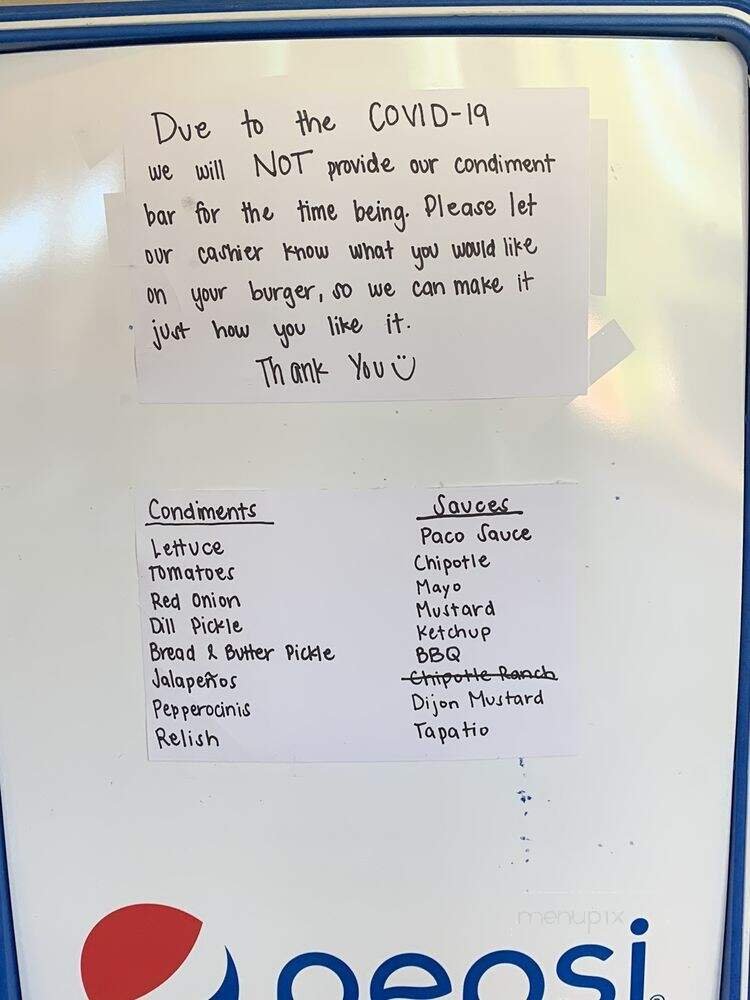 Due to the COVID-19
we will NOT provide our condiment
bar for the time being. Please let
our cashier know what you would like
on your burger, so we can make it
just how you like it.
Thank You
Condiments
Lettuce
Tomatoes
Red Onion
Dill Pickle
Bread & Butter Pickle
Jalapeños
Pepperocinis
Relish
Sauces
Paco Sauce
Chipotle
Mayo
Mustard
Ketchup
BBQ
Chipotle Ranch
Dijon Mustard
Tapatio
menupix
pepsi